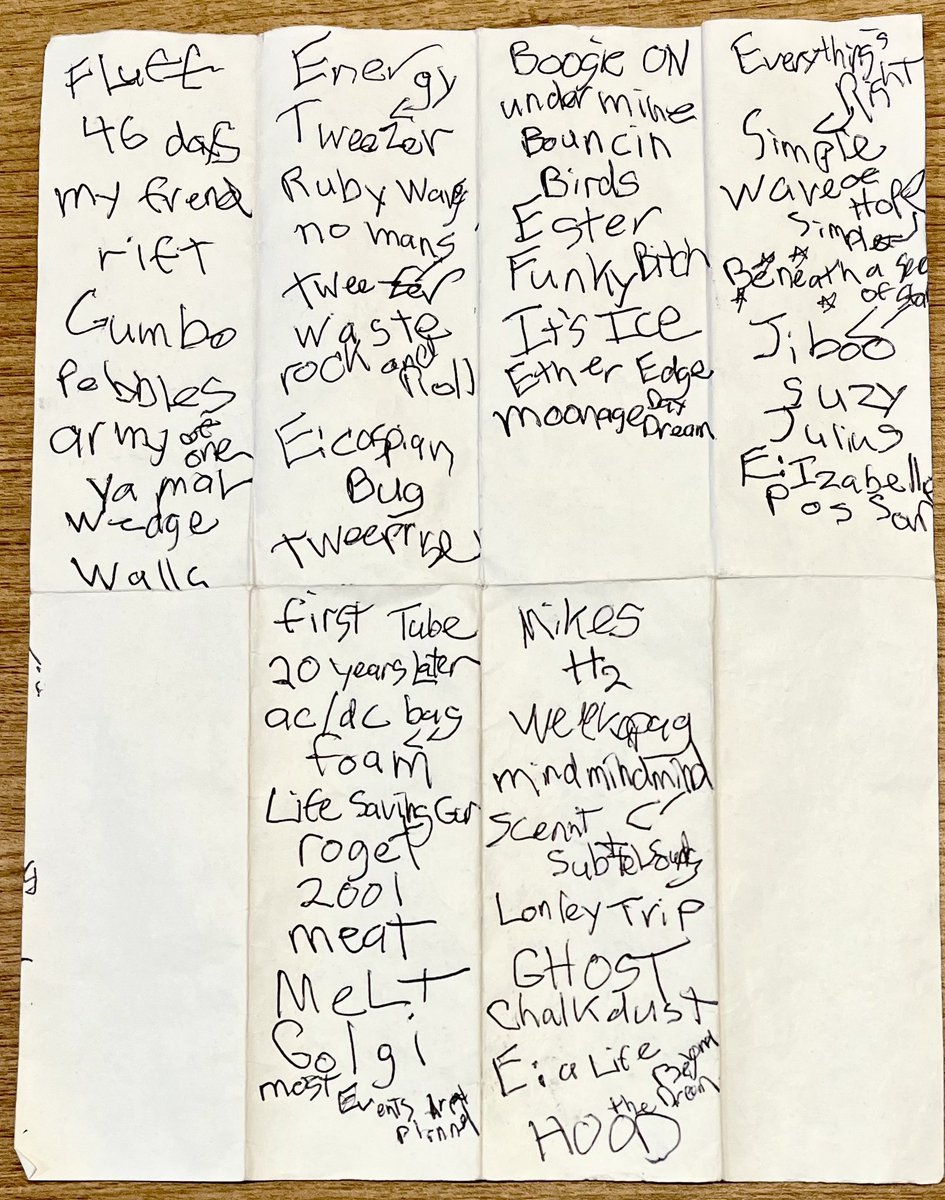 Fluff
46 days
my frend
rift
Gumbo
Pebbles
army of one
ya mar
Wedge
Walls
Energy
Tweezer
Ruby Wave
no mans
tweezer
waste
rock and Roll
E: caspian
Bug
tweeprise
Boogie ON
undermine
Bouncin
Birds
Ester
Funky Bitch
It's Ice
Ether Edge
moonage Day Dream
Everything's Right
Simple
wave of Hope
Simple
Beneath a see of star
Jiboo
suzy
Julius
E: Izabella
Pos Son
first Tube
20 years Later
ac/dc bag
foam
Life Saving Gun
roget
2001
meat
MeLT
Golgi
most Events Arent plannd
Mikes
H2
weekapag
mindmindmind
Scennt
Subtel Sounds
Lonley Trip
GHOST
Chalkdust
E: a Life Beyond the Dream
HOOD